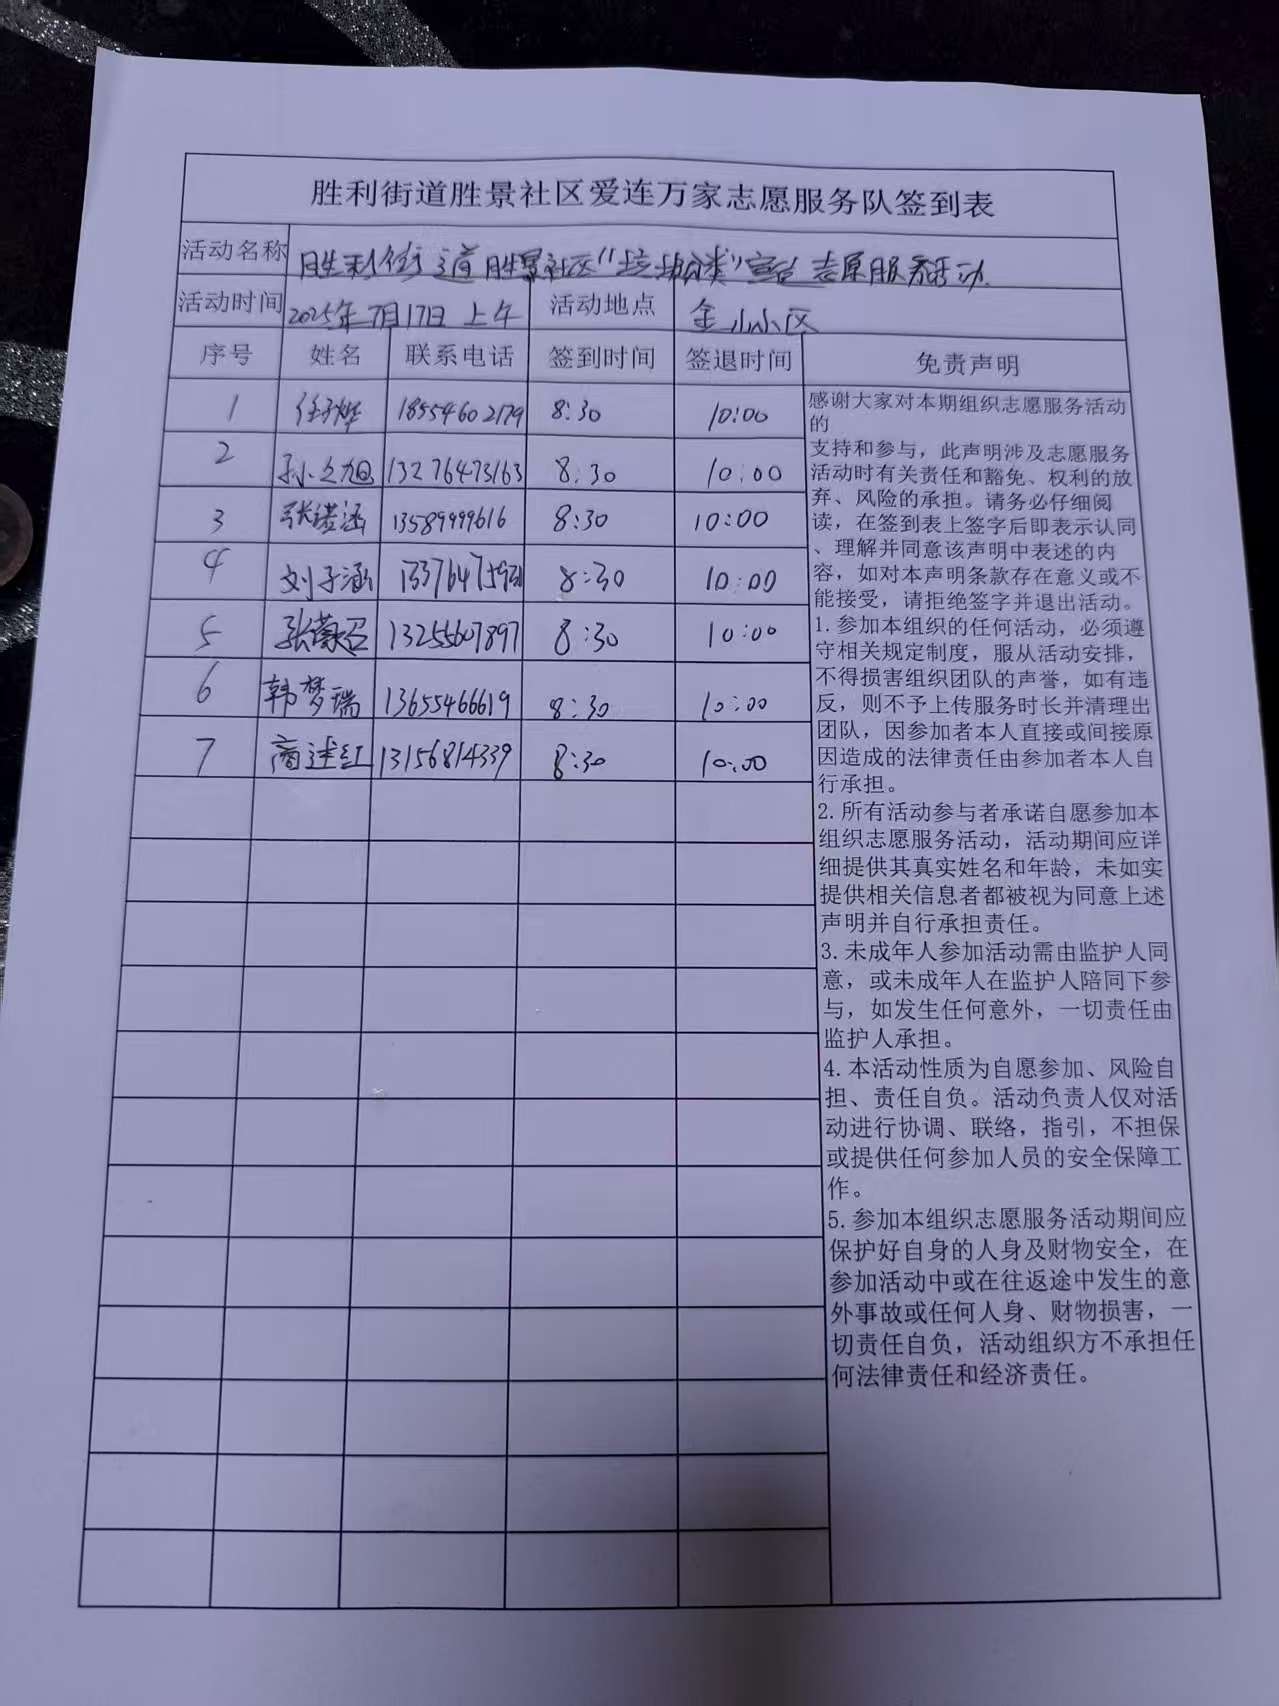 胜利街道胜景社区爱连万家志愿服务队签到表
活动名称 胜利街道胜景社区“垃圾分类”宣传志愿服务活动
活动时间 2025年7月17日上午 活动地点 金小区
序号 姓名 联系电话 签到时间 签退时间 免责声明
1 任 18554602179 8:30 10:00
2 孙之旭 13276473163 8:30 10:00
3 张诺涵 13589999616 8:30 10:00
4 刘子涵 8:30 10:00
5 张 13255607897 8:30 10:00
6 韩梦瑞 13655466619 8:30 10:00
7 商述红 13156814339 8:30 10:00
感谢大家对本期组织志愿服务活动
的
支持和参与，此声明涉及志愿服务
活动时有关责任和豁免、权利的放
弃、风险的承担。请务必仔细阅
读，在签到表上签字后即表示认同
、理解并同意该声明中表述的内
容，如对本声明条款存在意义或不
能接受，请拒绝签字并退出活动。
1.参加本组织的任何活动，必须遵
守相关规定制度，服从活动安排，
不得损害组织团队的声誉，如有违
反，则不予上传服务时长并清理出
团队，因参加者本人直接或间接原
因造成的法律责任由参加者本人自
行承担。
2.所有活动参与者承诺自愿参加本
组织志愿服务活动，活动期间应详
细提供其真实姓名和年龄，未如实
提供相关信息者都被视为同意上述
声明并自行承担责任。
3.未成年人参加活动需由监护人同
意，或未成年人在监护人陪同下参
与，如发生任何意外，一切责任由
监护人承担。
4.本活动性质为自愿参加、风险自
担、责任自负。活动负责人仅对活
动进行协调、联络，指引，不担保
或提供任何参加人员的安全保障工
作。
5.参加本组织志愿服务活动期间应
保护好自身的人身及财物安全，在
参加活动中或在往返途中发生的意
外事故或任何人身、财物损害，一
切责任自负，活动组织方不承担任
何法律责任和经济责任。